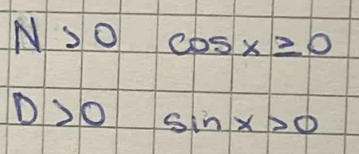 N > 0 cos x ≥ 0
D > 0 sin x > 0